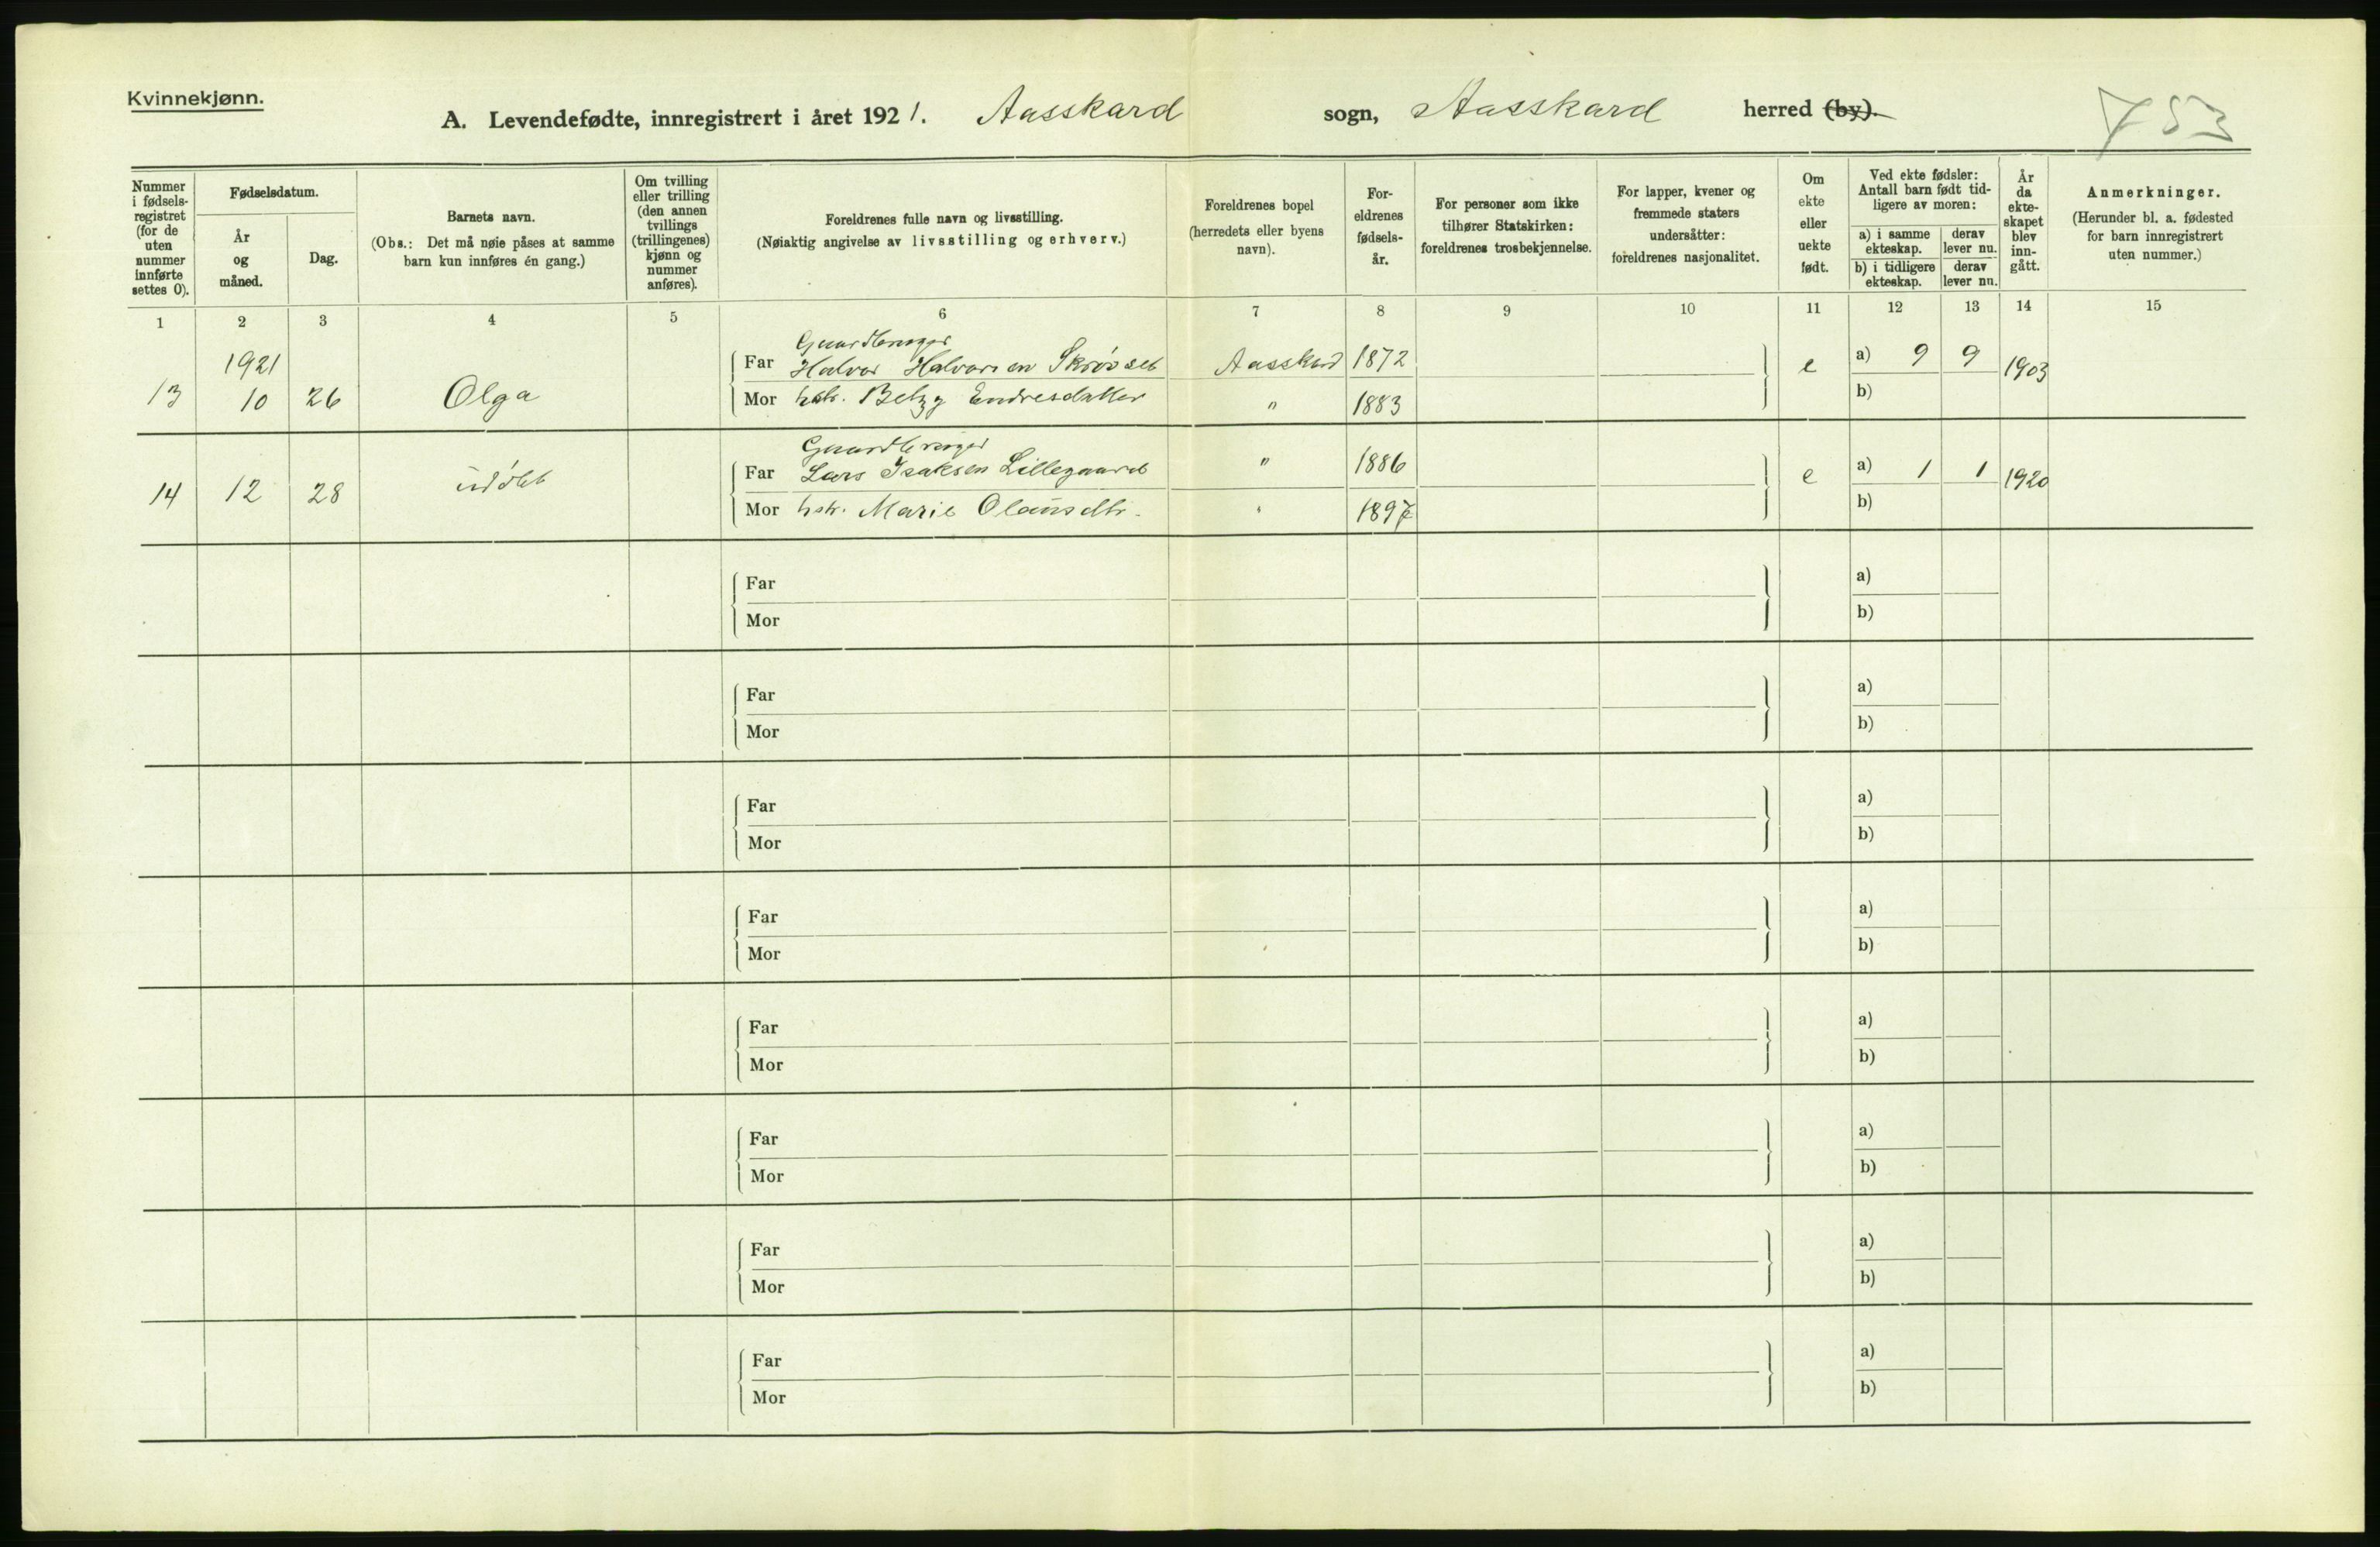 Kvinnekjønn.
A. Levendefødte, innregistrert i året 1921. Aasskard sogn, Aasskard herred (by).
753
Nummer i fødsels-registret (for de uten nummer innførte settes 0).
Fødselsdatum.
År og måned.
Dag.
Barnets navn.
(Obs.: Det må nøie påses at samme barn kun innføres én gang.)
Om tvilling eller trilling (den annen tvillings (trillingenes) kjønn og nummer anføres).
Foreldrenes fulle navn og livsstilling.
(Nøiaktig angivelse av livsstilling og erhverv.)
Foreldrenes bopel (herredets eller byens navn).
For-eldrenes fødsels-år.
For personer som ikke tilhører Statskirken: foreldrenes trosbekjennelse.
For lapper, kvener og fremmede staters undersåtter: foreldrenes nasjonalitet.
Om ekte eller uekte født.
Ved ekte fødsler: Antall barn født tid-ligere av moren:
a) i samme ekteskap. derav lever nu.
b) i tidligere ekteskap. derav lever nu.
År da ekte-skapet blev inn-gått.
Anmerkninger.
(Herunder bl. a. fødested for barn innregistrert uten nummer.)
1 2 3 4 5 6 7 8 9 10 11 12 13 14 15
Gaardbruger
1921 Far Halvor Halvorsen Skrøvset Aasskard 1872 e a) 9 9 1903
13 10 26 Olga Mor hstr. Betzy Endresdatter " 1883 b)
Gaardbruger
Far Lars Isaksen Lillegaard " 1886 e a) 1 1 1920
14 12 28 udøbt Mor hstr. Marie Olausdtr. " 1897 b)
Far a)
Mor b)
Far a)
Mor b)
Far a)
Mor b)
Far a)
Mor b)
Far a)
Mor b)
Far a)
Mor b)
Far a)
Mor b)
Far a)
Mor b)